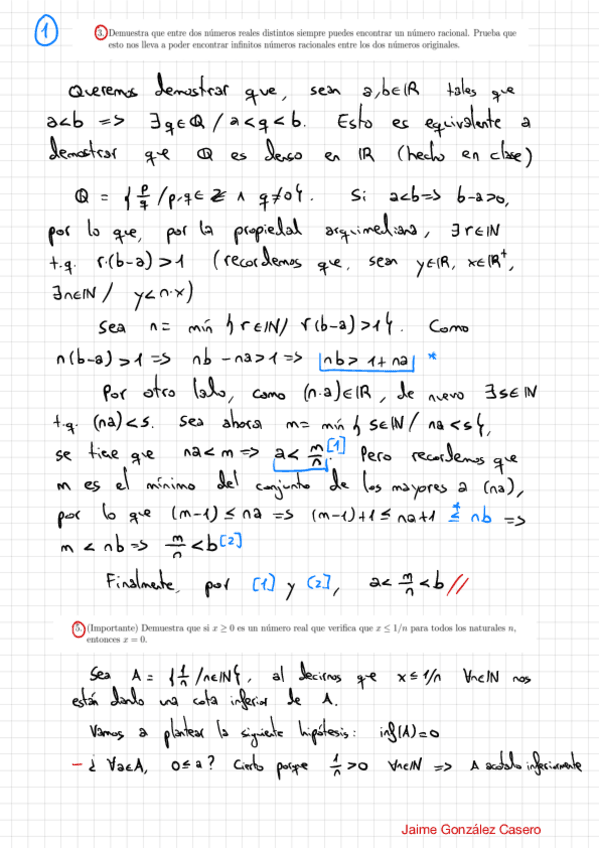 1
3. Demuestra que entre dos números reales distintos siempre puedes encontrar un número racional. Prueba que
esto nos lleva a poder encontrar infinitos números racionales entre los dos números originales.
Queremos demostrar que, sean a,b∈ℝ tales que
a<b => ∃q∈ℚ / a<q<b. Esto es equivalente a
demostrar que ℚ es denso en ℝ (hecho en clase)
ℚ = {p/q / p,q ∈ ℤ ∧ q≠0}. Si a<b => b-a>0,
por lo que, por la propiedad arquimediana, ∃r∈ℕ
t.q. r·(b-a)>1 (recordemos que, sean y∈ℝ, x∈ℝ⁺,
∃n∈ℕ / y<n·x)
Sea n = mín {r∈ℕ / r(b-a)>1}. Como
n(b-a)>1 => nb-na>1 => nb>1+na *
Por otro lado, como (n·a)∈ℝ, de nuevo ∃s∈ℕ
t.q. (na)<s. Sea ahora m= mín {s∈ℕ / na<s},
se tiene que na<m => a<m/n [1]. Pero recordemos que
m es el mínimo del conjunto de los mayores a (na),
por lo que (m-1)≤na => (m-1)+1≤na+1 *≤ nb =>
m<nb => m/n<b [2]
Finalmente, por [1] y [2], a<m/n<b //
5. (Importante) Demuestra que si x ≥ 0 es un número real que verifica que x ≤ 1/n para todos los naturales n,
entonces x = 0.
Sea A = {1/n / n∈ℕ}, al decirnos que x≤1/n ∀n∈ℕ nos
están dando una cota inferior de A.
Vamos a plantear la siguiente hipótesis: inf(A)=0
- ¿ ∀a∈A, 0≤a? Cierto porque 1/n>0 ∀n∈ℕ => A acotado inferiormente
Jaime González Casero